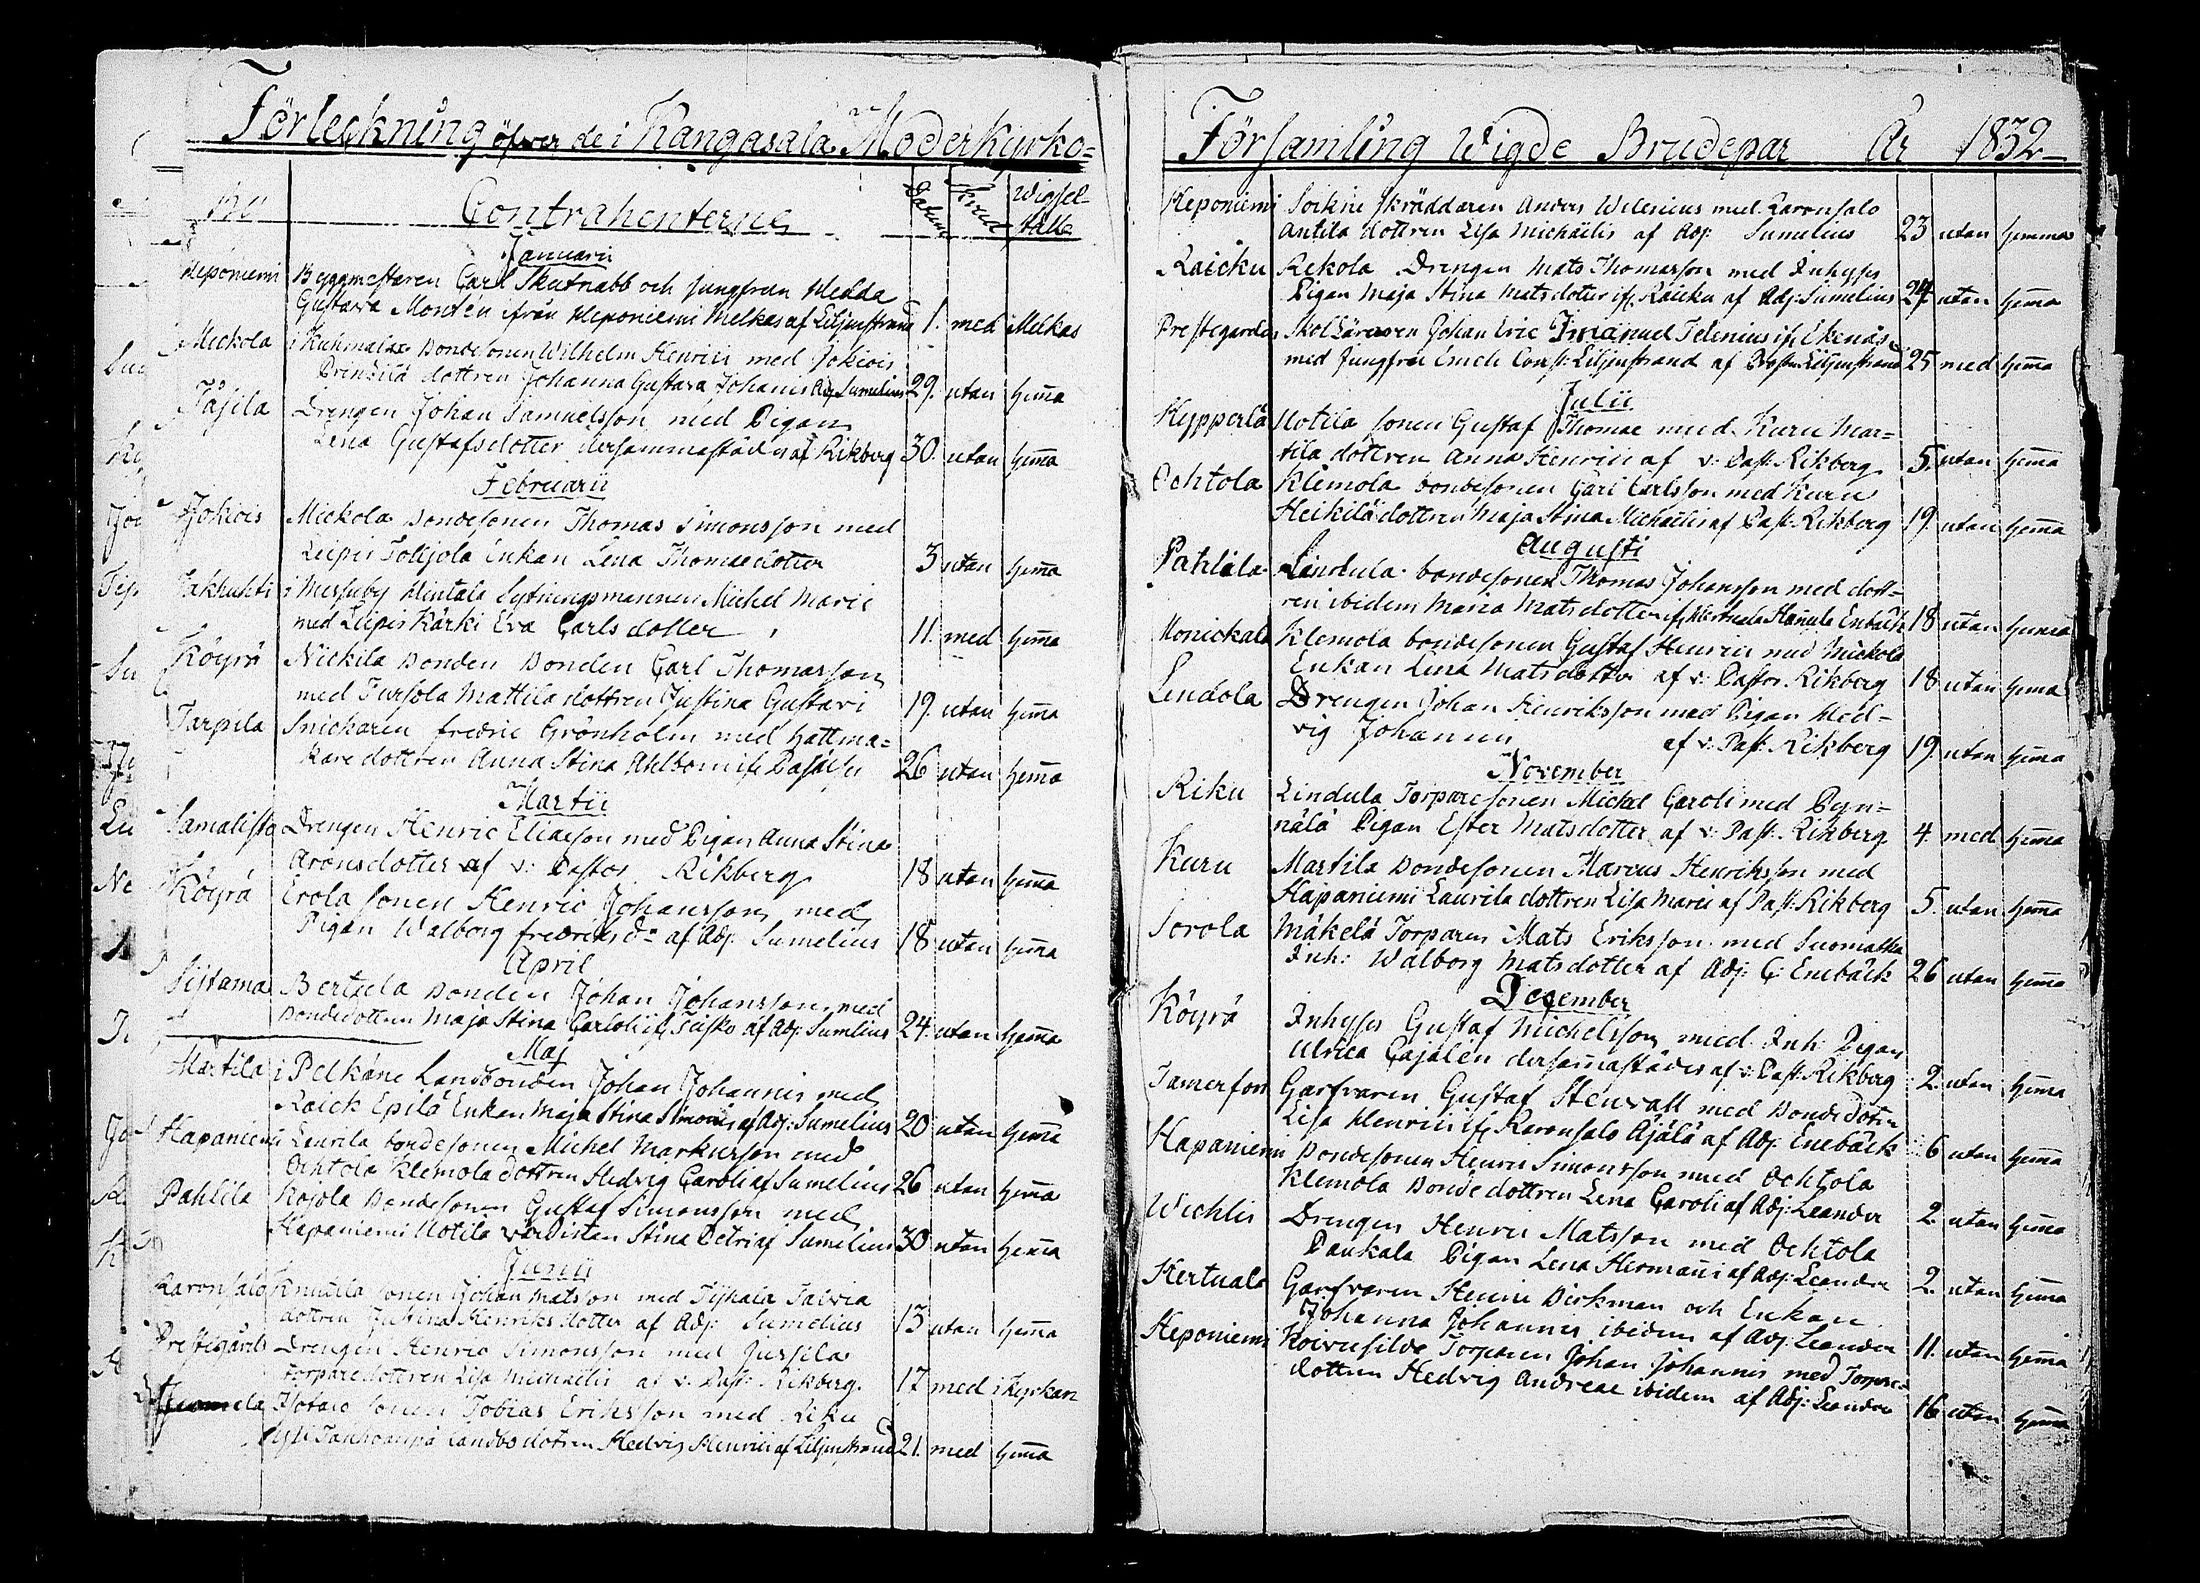 Förteckning öfwer de i Kangasala Moderkyrko=
By Contrahenterne Datum Krut Wigsel ställe
Januarii
Heponiemi Byggmästaren Carl Skutnabb och Jungfrun Hedda
Gustava Montén ifrån Heponiemi Melkas af Liljenstrand 1. med Melkas
Mickola i Kuhmalax Bondesonen Wilhelm Henrici med Jokiois
Prensilä dottren Johanna Gustava Johanis Adj Sumelius 29. utan hema
Tåjila Drengen Johan Samuelsson med Pigan
Lena Gustafsdotter dersammastädes af Rikberg 30. utan hema
Februarii
Jokiois Mickola Bondesonen Thomas Simonsson med
Liipis Tolijola Enkan Lena Thomædotter 3 utan hema
Jakkuhti i Messuby Hintala Sytningsmannen Michel Marci
med Liipis Kärki Eva Carls dotter 11. med hema
Köyrä Nickila Bonden Bonden Carl Thomasson
med Tursola Mattila dottren Justina Gustavi 19. utan hema
Tarpila Snickaren fredric Grönholm med hattma=
kare dottren Anna Stina Ahlbom if 26 utan hema
Martii
Samalista Drengen Henric Eliasson med Pigan Anna Stina
Aronsdotter af v: Pastor Rikberg 18 utan hema
Köyrä Erola sonen Henric Johansson med
Pigan Walborg fredriksdr af Adj: Sumelius 18 utan hema
April
Sijtama Bertula Bonden Johan Johansson med
Bondedottren Maja Stina Caroli if Tiisko af Adj: Sumelius 24. utan hema
Maj
Martila i Pelkäne Landbonden Johan Johannis med
Raick Epilä Enkan Maja Stina Simonis af Adj: Sumelius 20 utan hema
Hapaniemi Laurila bondesonen Michel Markusson med
Ochtola Klemola dottren Hedvig Caroli af Sumelius 26 utan hema
Pahlila Kojola Bondesonen Gustaf Simonsson med
Hapaniemi Notila Stina Petri af Sumelius 30 utan hema
Junii
Raronsalo Knuutila sonen Johan Matsson med Tijhala Talvia
dottren Justina Henriks dotter af Adj: Sumelius 13 utan hema
Prestegård Drengen Henric Simonsson med Jussila
Torparedottren Lisa Michaëlis af v: Past: Rikberg. 17 med i Kyrkan
sonen Tobias Eriksson med Riku
Landbo dotren Hedvig Henrici af Liljenstrand 21. med hema
Församling Wigde Brudepar År 1832
Heponiemi Soikne skräddaren Anders Wilenius med Raronsalo
Antila dottren Lisa Michaëlis af Adj: Sumelius 23 utan hemma
Raicku Rekola Drengen Mats Thomasson med Inhyses
Pigan Maja Stina Matsdotter if Raicku af Adj: Sumelius 24 utan hema
Prestegården Skol Läraren Johan Eric Imanuel Telenius if Ekenäs
med Jungfru Emeli Const: Liljenstrand af Prosten Liljenstrand 25 med hema
Julii
Kypperlä Uotila sonen Gustaf Thomae med Kuru Mar=
tila dottren Anna Henrici af v: Past: Rikberg 5. utan hema
Ochtola Klemola bondesonen Carl Carlsson med Kuru
Heikilä dottren Maja Stina Michaëlis af Past: Rikberg 19. utan hema
Augusti
Pahlila Lindula bondesonen Thomas Johansson med dott=
ren ibidem Maria Matsdotter if Hertuala Hanula Enbäck 18 utan hema
Monickala Klemola bondesonen Gustaf Henrici med Mickola
Enkan Lena Matsdotter af v: Pastor Rikberg 18 utan hema
Lendola Drengen Johan Henriksson med Pigan Hed=
vig Johannis af v: Past: Rikberg 19. utan hema
November
Riku Lindula Torparesonen Michel Caroli med Pyn=
nälä Pigan Ester Matsdotter af v: Past: Rikberg. 4. med hema
Kuru Martila Bondesonen Marcus Henriksson med
Hapaniemi Laurila dottren Lisa Marci af Past: Rikberg 5. utan hema
Sorola Mäkelä Torparen Mats Eriksson med Suomatka
Inh: Walborg Matsdotter af Adj: C: Enebäck 26 utan hema
December
Köyrä Inhyses Gustaf Michelsson med Inh: Pigan
Ulrica Cajalén dersamastädes af v: Past: Rikberg 2. utan hema
Tamerfors Garfvaren Gustaf Stenvall med Bondedotn
Lisa Henrici if Raronsalo Äjälä af Adj: Enebäck 6 utan hema
Hapaniemi Bondesonen Henric Simonsson med Ochtola
Klemola Bondedottren Lena Caroli af Adj: Leander 2 utan hema
Wechlis Drengen Henric Matsson med Ochtola
Paukala Pigan Lena Hermani af Adj: Leander 2. utan hema
Hertuala Garfvaren Henric Birkman och Enkan
Johanna Johannis ibidem af Adj: Leander 11. utan hema
Heponiemi Koivusilda Torparen Johan Johannis med Torpare=
dottren Hedvig Andreae ibidem af Adj: Leander 16 utan hema